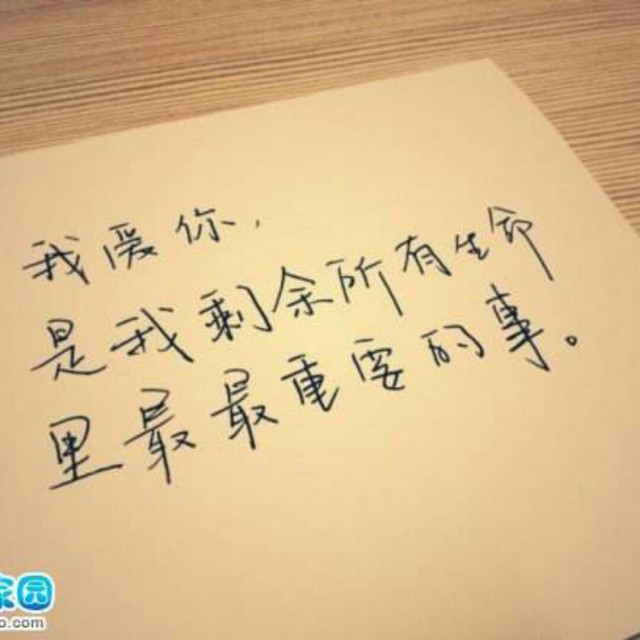 我爱你,
是我剩余所有生命
里最最重要的事。
家园
o.com